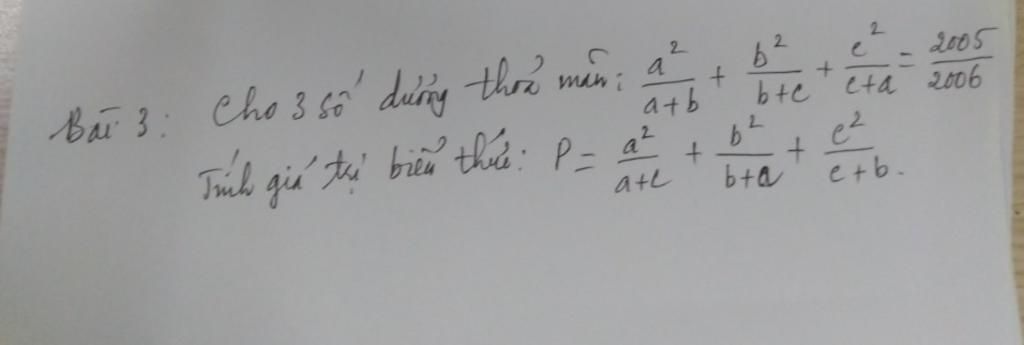 Bài 3: Cho 3 số dương thoả mãn: a²/(a+b) + b²/(b+c) + c²/(c+a) = 2005/2006
Tính giá trị biểu thức: P = a²/(a+c) + b²/(b+a) + c²/(c+b).